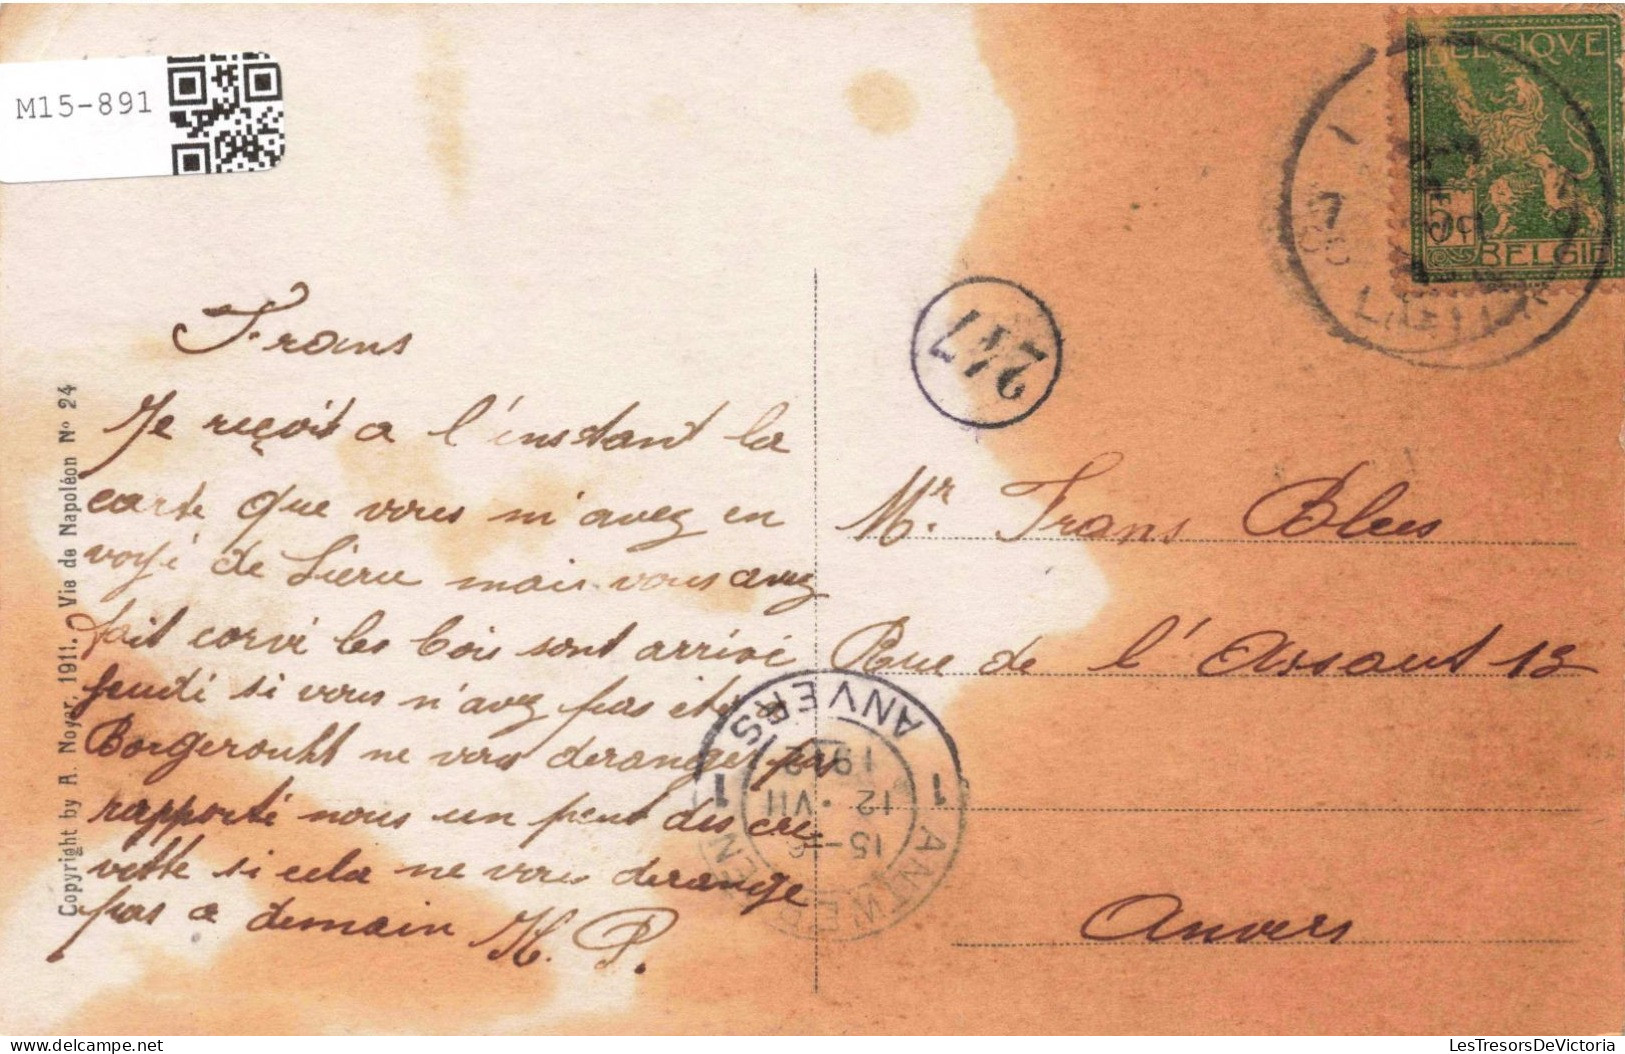 M15-891
BELGIQVE
5
BELGIË
247
Frans
Je reçois a l'instant la
carte que vous m'avez en
voyé de Lierre mais vous avez
fait corvé les bois sont arrivé
jeudi si vous n'avez pas été
Borgerouht ne vous deranger pas
rapporté nous un peut des cre-
vette si cela ne vous derange
pas a demain H. P.
Mr. Frans Blees
Rue de l'Assaut 13
Anvers
1 ANVERS 1 ANTWERPEN
15-
12 · VII
1912
Copyright by A. Noyer, 1911. Vie de Napoléon No 24
LesTresorsDeVictoria.delcampe.net